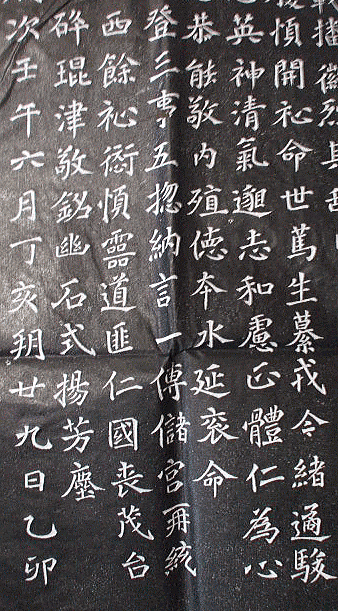 播徽烈
慎開祉命世篤生纂戎令緒遹駿
英神清氣邈志和慮正體仁為心
恭能敬內殖德本水延衮命
登三事五揔納言一傅儲宮再統
西餘祉慎靈道匪仁國喪茂台
碎琨津敬銘幽石式揚芳塵
次壬午六月丁亥朔廿九日乙卯